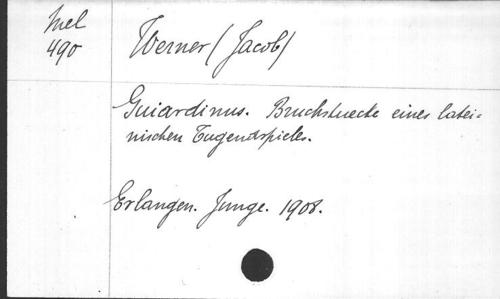 Mel
490
Werner (Jacob)
Guiardinus. Bruchstuecke eines latei=
nischen Tugendspieles.
Erlangen. Junge. 1908.